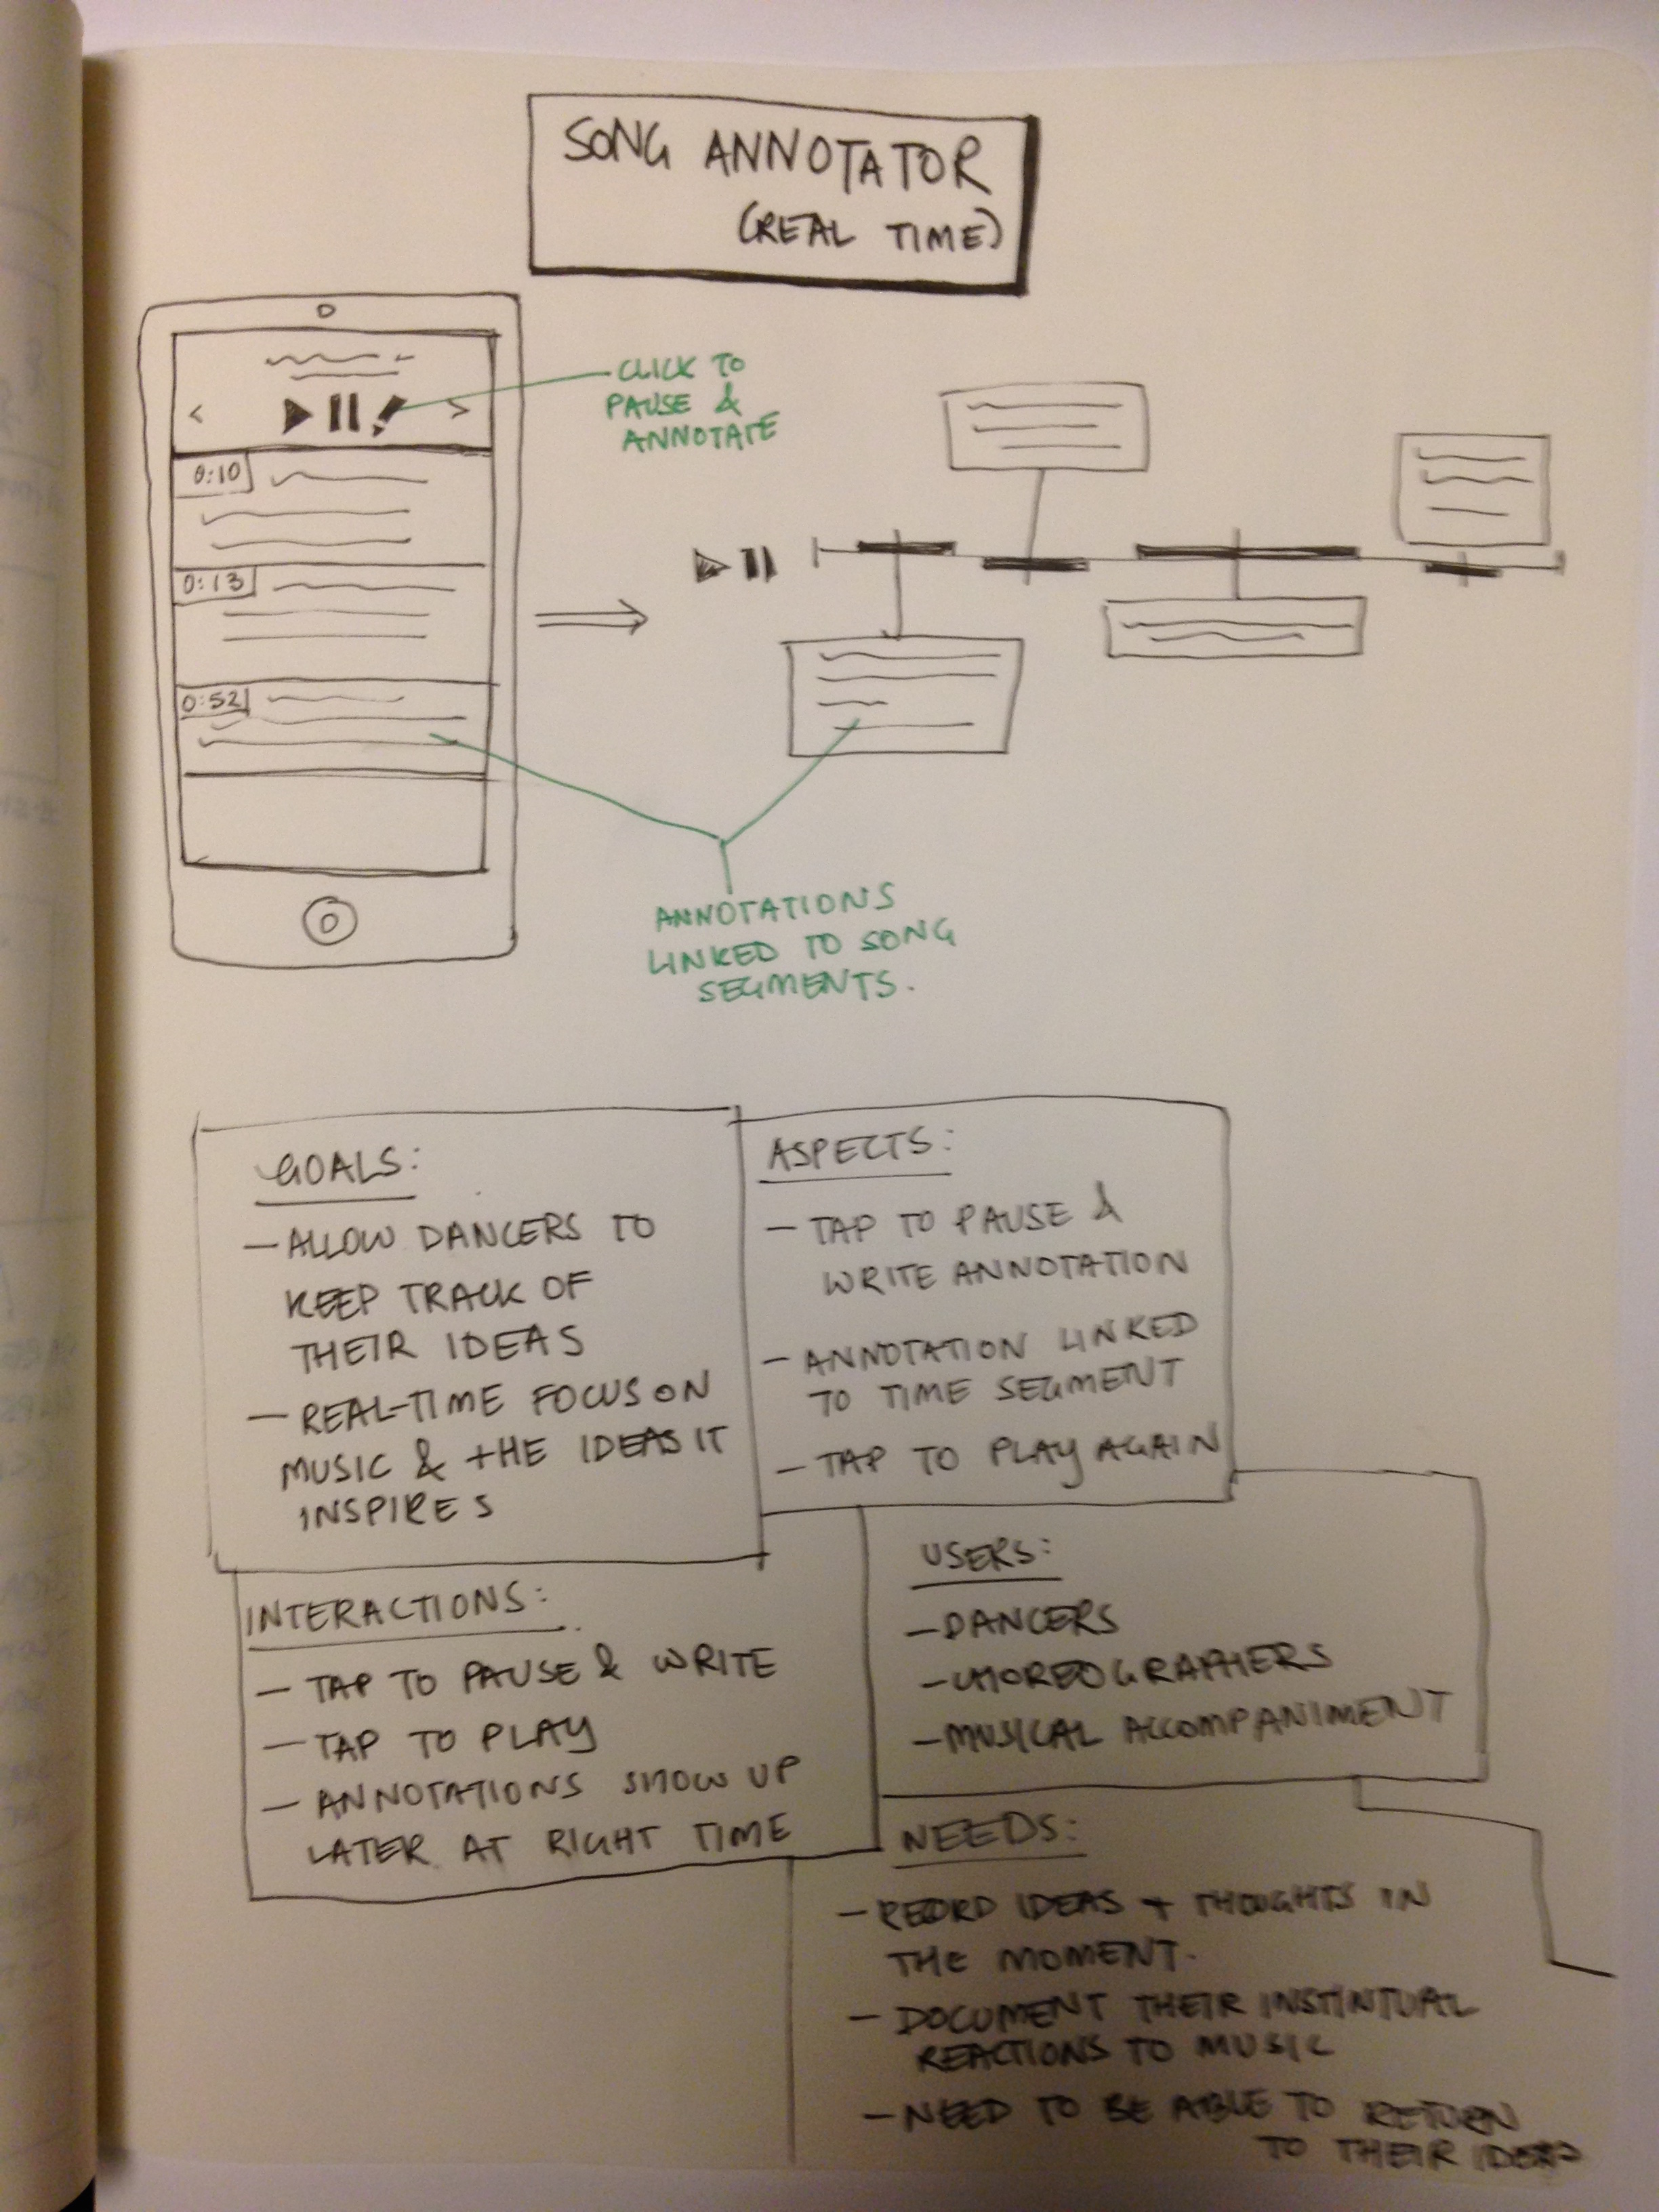 SONG ANNOTATOR
(REAL TIME)
CLICK TO
PAUSE &
ANNOTATE
0:10
0:13
0:52
ANNOTATIONS
LINKED TO SONG
SEGMENTS.
GOALS:
– ALLOW DANCERS TO
KEEP TRACK OF
THEIR IDEAS
– REAL-TIME FOCUS ON
MUSIC & THE IDEAS IT
INSPIRES
ASPECTS:
– TAP TO PAUSE &
WRITE ANNOTATION
– ANNOTATION LINKED
TO TIME SEGMENT
– TAP TO PLAY AGAIN
INTERACTIONS:
– TAP TO PAUSE & WRITE
– TAP TO PLAY
– ANNOTATIONS SHOW UP
LATER AT RIGHT TIME
USERS:
– DANCERS
– CHOREOGRAPHERS
– MUSICAL ACCOMPANIMENT
NEEDS:
– RECORD IDEAS + THOUGHTS IN
THE MOMENT.
– DOCUMENT THEIR INSTINTUAL
REACTIONS TO MUSIC
– NEED TO BE ABLE TO RETURN
TO THEIR IDEAS